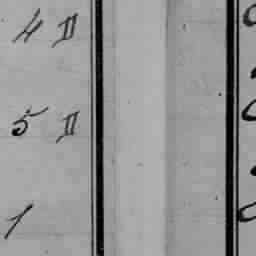 4 II
5 II
1